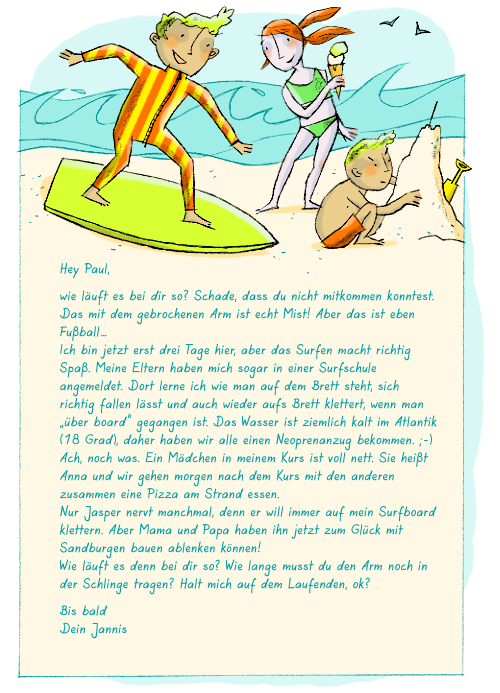 Hey Paul,
wie läuft es bei dir so? Schade, dass du nicht mitkommen konntest.
Das mit dem gebrochenen Arm ist echt Mist! Aber das ist eben
Fußball...
Ich bin jetzt erst drei Tage hier, aber das Surfen macht richtig
Spaß. Meine Eltern haben mich sogar in einer Surfschule
angemeldet. Dort lerne ich wie man auf dem Brett steht, sich
richtig fallen lässt und auch wieder aufs Brett klettert, wenn man
„über board" gegangen ist. Das Wasser ist ziemlich kalt im Atlantik
(18 Grad), daher haben wir alle einen Neoprenanzug bekommen. ;-)
Ach, noch was. Ein Mädchen in meinem Kurs ist voll nett. Sie heißt
Anna und wir gehen morgen nach dem Kurs mit den anderen
zusammen eine Pizza am Strand essen.
Nur Jasper nervt manchmal, denn er will immer auf mein Surfboard
klettern. Aber Mama und Papa haben ihn jetzt zum Glück mit
Sandburgen bauen ablenken können!
Wie läuft es denn bei dir so? Wie lange musst du den Arm noch in
der Schlinge tragen? Halt mich auf dem Laufenden, ok?
Bis bald
Dein Jannis